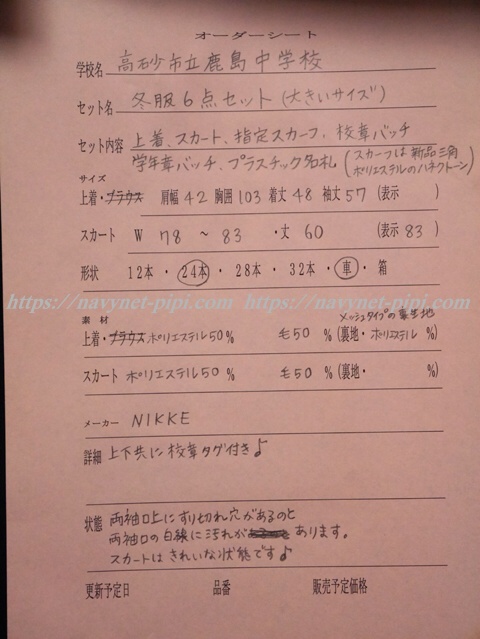 オーダーシート
学校名 高砂市立鹿島中学校
セット名 冬服6点セット(大きいサイズ)
セット内容 上着、スカート、指定スカーフ、校章バッチ
学年章バッチ、プラスチック名札 (スカーフは新品三角
ポリエステルのハネクトーン)
サイズ
上着・ブラウス 肩幅 42 胸囲 103 着丈 48 袖丈 57 (表示 )
スカート W 78 ~ 83 ・丈 60 (表示 83)
形状 12本 ・ 24本 ・ 28本 ・ 32本 ・ 車 ・ 箱
https://navynet-pipi.com/ https://navynet-pipi.com/
素材 メッシュタイプの裏生地
上着・ブラウス ポリエステル 50 % 毛 50 % (裏地・ポリエステル %)
スカート ポリエステル 50 % 毛 50 % (裏地・ %)
メーカー NIKKE
詳細 上下共に校章タグ付き♪
状態 両袖口上にすり切れ穴があるのと
両袖口の白線に汚れが あります。
スカートはきれいな状態です♪
更新予定日 品番 販売予定価格